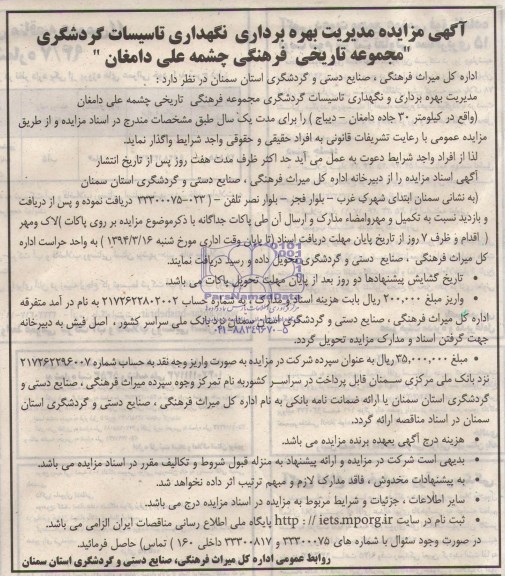 آگهی مزایده مدیریت بهره برداری نگهداری تاسیسات گردشگری
"مجموعه تاریخی فرهنگی چشمه علی دامغان "
اداره کل میراث فرهنگی ، صنایع دستی و گردشگری استان سمنان در نظر دارد :
مدیریت بهره برداری و نگهداری تاسیسات گردشگری مجموعه فرهنگی تاریخی چشمه علی دامغان
(واقع در کیلومتر ۳۰ جاده دامغان – دیباج ) را برای مدت یک سال طبق مشخصات مندرج در اسناد مزایده و از طریق
مزایده عمومی با رعایت تشریفات قانونی به افراد حقیقی و حقوقی واجد شرایط واگذار نماید.
لذا از افراد واجد شرایط دعوت به عمل می آید حد اکثر ظرف مدت هفت روز پس از تاریخ انتشار
آگهی اسناد مزایده را از دبیرخانه اداره کل میراث فرهنگی ، صنایع دستی و گردشگری استان سمنان
(به نشانی سمنان ابتدای شهرک غرب – بلوار فجر – بلوار نصر تلفن – ( ۰۲۳-۳۳۳۰۰۰۷۵ دریافت نموده و پس از دریافت
و بازدید نسبت به تکمیل و مهروامضاء مدارک و ارسال آن طی پاکات جداگانه با ذکرموضوع مزایده بر روی پاکات )لاک ومهر
( اقدام و ظرف ۷ روز از تاریخ پایان مهلت دریافت اسناد(تا پایان وقت اداری مورخ شنبه ۱۳۹۴/۳/۱۶ ) به واحد حراست اداره
کل میراث فرهنگی ، صنایع دستی و گردشگری تحویل داده و رسید دریافت نمایند.
• تاریخ گشایش پیشنهادها دو روز بعد از پایان مهلت تحویل پاکات می باشد.
• واریز مبلغ ۲۰۰,۰۰۰ ریال بابت هزینه اسناد و مدارک ، به شماره حساب ۲۱۷۲۶۲۲۸۰۲۰۰۲ به نام در آمد متفرقه
اداره کل میراث فرهنگی ، صنایع دستی و گردشگری استان سمنان نزد بانک ملی سراسر کشور ، اصل فیش به دبیرخانه
جهت گرفتن اسناد و مدارک مزایده تحویل گردد.
• مبلغ ۳۵,۰۰۰,۰۰۰ ریال به عنوان سپرده شرکت در مزایده به صورت واریز وجه نقد به حساب شماره ۲۱۷۲۶۲۲۹۶۰۰۷
نزد بانک ملی مرکزی سمنان قابل پرداخت در سراسر کشوربه نام تمرکز وجوه سپرده میراث فرهنگی ، صنایع دستی و
گردشگری استان سمنان یا ارائه ضمانت نامه بانکی به نام اداره کل میراث فرهنگی ، صنایع دستی و گردشگری استان
سمنان در اسناد مناقصه ارائه گردد.
• هزینه درج آگهی بعهده برنده مزایده می باشد.
• بدیهی است شرکت در مزایده و ارائه پیشنهاد به منزله قبول شروط و تکالیف مقرر در اسناد مزایده می باشد.
• به پیشنهادات مخدوش ، فاقد مدارک لازم و مبهم ترتیب اثر داده نخواهد شد.
• سایر اطلاعات ، جزئیات و شرایط مربوط به مزایده در اسناد مزایده درج می باشد.
• ثبت نام در سایت http : // iets.mporg.ir پایگاه ملی اطلاع رسانی مناقصات ایران الزامی می باشد.
در صورت وجود سئوال با شماره های ۳۳۳۰۰۰۷۵ و ۳۳۳۰۰۸۱۷ داخلی ۱۶۰ ) تماس) حاصل فرمائید.
روابط عمومی اداره کل میراث فرهنگی، صنایع دستی و گردشگری استان سمنان
ParsNamadData
۰۲۱-۸۸۳۴۹۶۷۰-۵